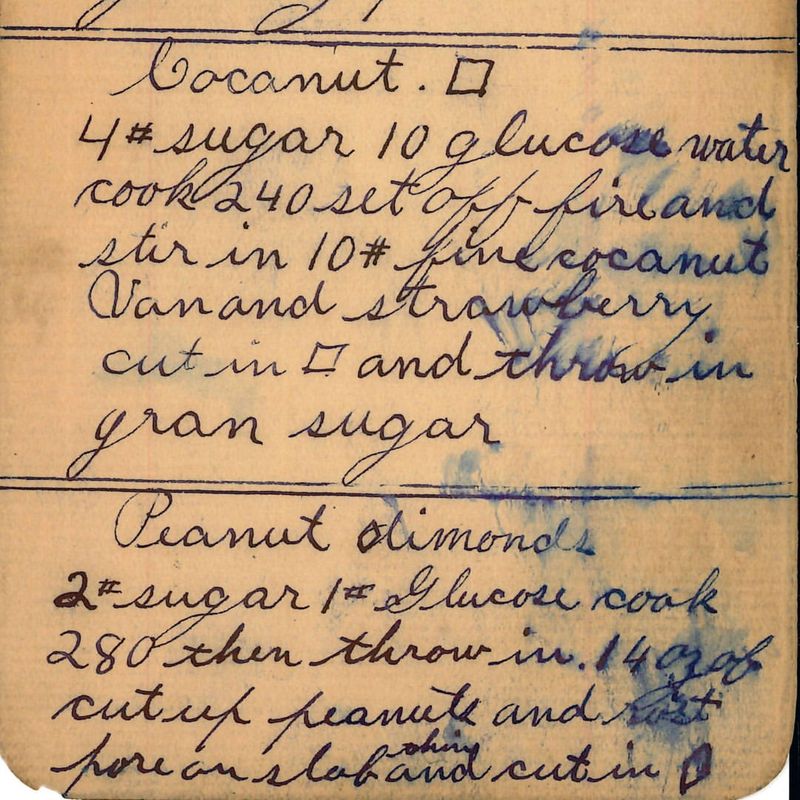 Cocanut. □
4# sugar 10 glucose water
cook 240 set off fire and
stir in 10# fine cocanut
Van and strawberry
cut in □ and throw in
gran sugar
Peanut dimonds
2# sugar 1# Glucose cook
280 then throw in. 14 oz of
cut up peanuts and rost
pore on slab and thin cut in ◊